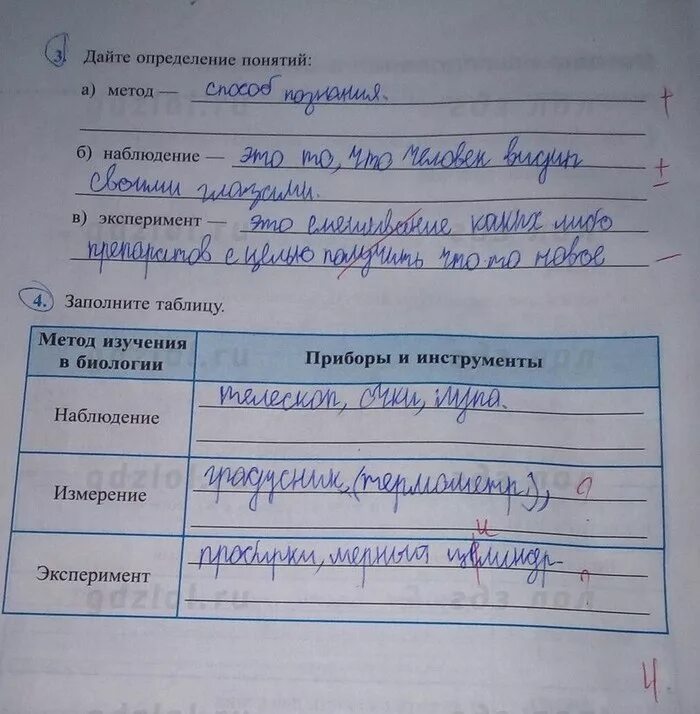 3. Дайте определение понятий:
а) метод — способ познания. +
б) наблюдение — это то, что человек видит ±
своими глазами.
в) эксперимент — это смешивание каких либо
препаратов с целью получить что-то новое —
4. Заполните таблицу.
Метод изучения
в биологии
Приборы и инструменты
Наблюдение
телескоп, очки, лупа.
Измерение
градусник, (термометр),
и
Эксперимент
пробирки, мерный целиндр
4